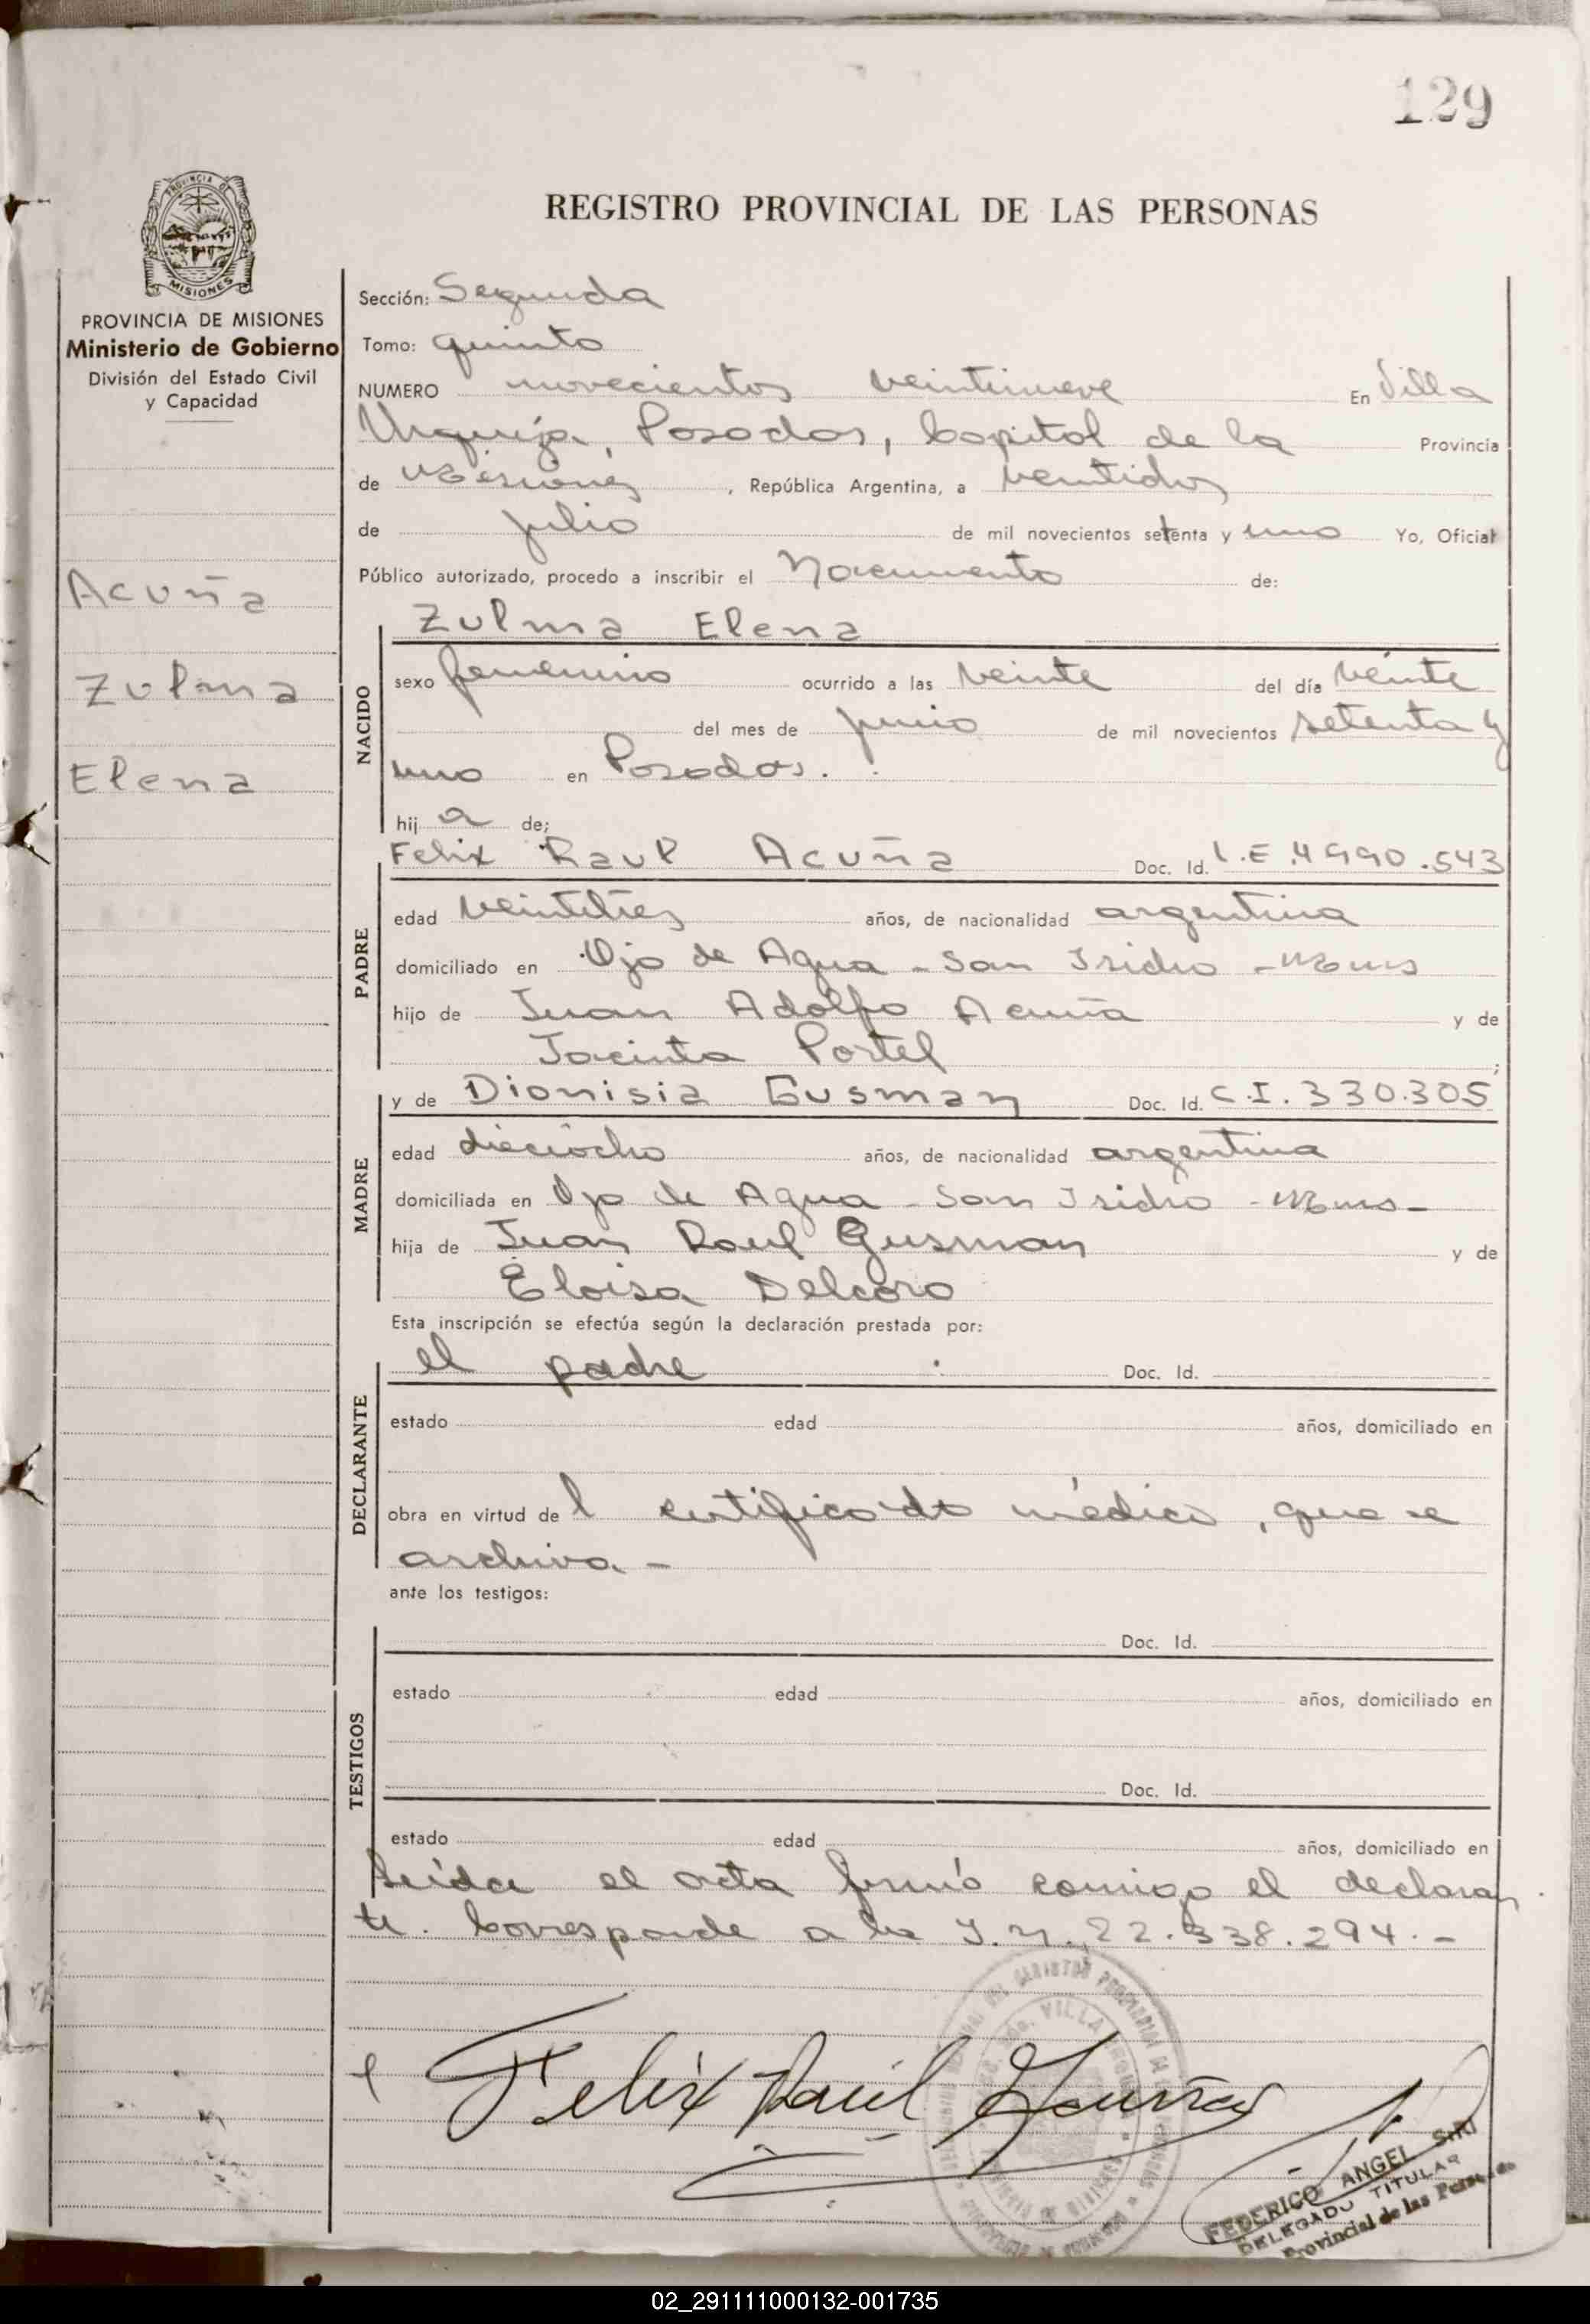 129
PROVINCIA DE
MISIONES
REGISTRO PROVINCIAL DE LAS PERSONAS
PROVINCIA DE MISIONES
Ministerio de Gobierno
División del Estado Civil
y Capacidad
Acuña
Zulma
Elena
Sección: Segunda
Tomo: quinto
NUMERO novecientos veintinueve En Villa
Urquiza, Posadas, Capital de la Provincia
de Misiones, República Argentina, a veintidos
de julio de mil novecientos setenta y uno Yo, Oficial
Público autorizado, procedo a inscribir el Nacimiento de:
Zulma Elena
NACIDO
sexo femenino ocurrido a las veinte del día veinte
del mes de junio de mil novecientos setenta y
uno en Posadas.
hij a de;
Felix Raul Acuña Doc. Id. L.E. 4990.543
PADRE
edad veintitres años, de nacionalidad argentina
domiciliado en Ojo de Agua - San Isidro - Mnes
hijo de Juan Adolfo Acuña y de
Jacinta Portel;
y de Dionisia Gusman Doc. Id. C.I. 330.305
MADRE
edad dieciocho años, de nacionalidad argentina
domiciliada en Ojo de Agua - San Isidro - Mnes -
hija de Juan Raul Gusman y de
Eloisa Delcoro
Esta inscripción se efectúa según la declaración prestada por:
el padre Doc. Id.
DECLARANTE
estado edad años, domiciliado en
obra en virtud de l certificado médico, que se
archiva -
ante los testigos:
Doc. Id.
TESTIGOS
estado edad años, domiciliado en
Doc. Id.
estado edad años, domiciliado en
Leída el acta firmó conmigo el declaran
te. Corresponde a la I.N. 22.338.294. -
Felix Raúl Acuña
VILLA
FEDERICO ANGEL
DELEGADO TITULAR
Provincial de las
02_291111000132-001735